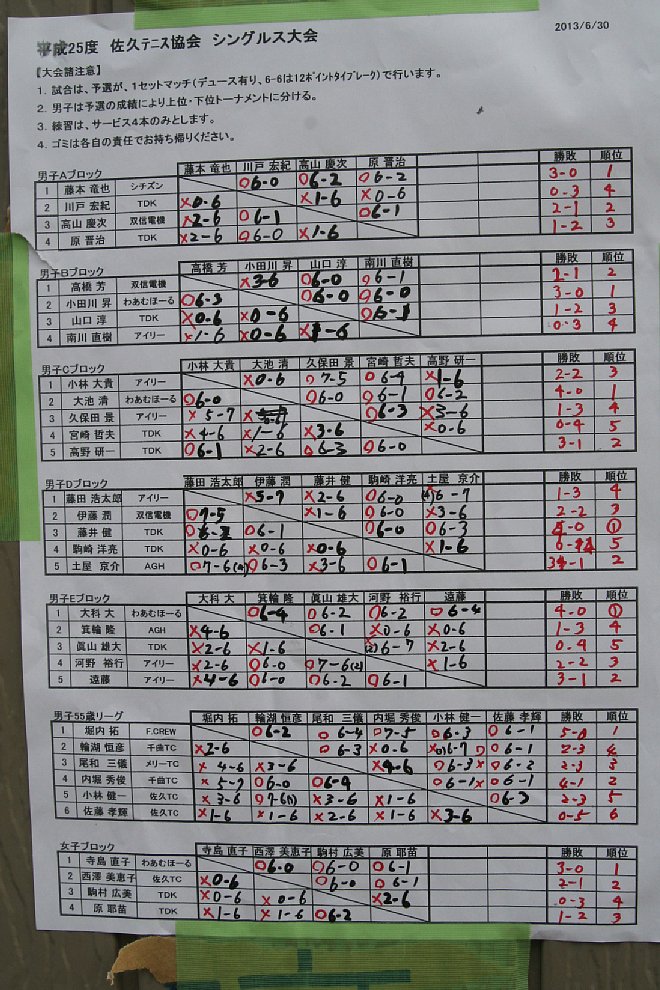 平成25度 佐久テニス協会 シングルス大会 2013/6/30
【大会諸注意】
1. 試合は、予選が、1セットマッチ(デュース有り、6-6は12ポイントタイブレーク)で行います。
2. 男子は予選の成績により上位・下位トーナメントに分ける。
3. 練習は、サービス4本のみとします。
4. ゴミは各自の責任でお持ち帰りください。
男子Aブロック 藤本 竜也 川戸 宏紀 高山 慶次 原 晋治 勝敗 順位
1 藤本 竜也 シチズン O6-0 O6-2 O6-2 3-0 1
2 川戸 宏紀 TDK x0-6 x1-6 x0-6 0-3 4
3 高山 慶次 双信電機 x2-6 O6-1 O6-1 2-1 2
4 原 晋治 TDK x2-6 O6-0 x1-6 1-2 3
男子Bブロック 高橋 芳 小田川 昇 山口 淳 南川 直樹 勝敗 順位
1 高橋 芳 双信電機 x3-6 O6-0 O6-1 2-1 2
2 小田川 昇 わあむほーる O6-3 O6-0 O6-0 3-0 1
3 山口 淳 TDK x0-6 x0-6 O6-1 1-2 3
4 南川 直樹 アイリー x1-6 x0-6 x1-6 0-3 4
男子Cブロック 小林 大貴 大池 清 久保田 景 宮崎 哲夫 高野 研一 勝敗 順位
1 小林 大貴 アイリー x0-6 O7-5 O6-4 x1-6 2-2 3
2 大池 清 わあむほーる O6-0 O6-0 O6-1 O6-2 4-0 1
3 久保田 景 アイリー x5-7 O6-3 x3-6 1-3 4
4 宮崎 哲夫 TDK x4-6 x1-6 x3-6 x0-6 0-4 5
5 高野 研一 TDK O6-1 x2-6 O6-3 O6-0 3-1 2
男子Dブロック 藤田 浩太郎 伊藤 潤 藤井 健 駒崎 洋亮 土屋 京介 勝敗 順位
1 藤田 浩太郎 アイリー x5-7 x2-6 O6-0 6-7 1-3 4
2 伊藤 潤 双信電機 O7-5 x1-6 O6-0 x3-6 2-2 3
3 藤井 健 TDK O6-2 O6-1 O6-0 O6-3 4-0 ①
4 駒崎 洋亮 TDK x0-6 x0-6 x0-6 x1-6 0-4 5
5 土屋 京介 AGH O7-6(4) O6-3 x3-6 O6-1 3-1 2
男子Eブロック 大科 大 箕輪 隆 眞山 雄大 河野 裕行 遠藤 勝敗 順位
1 大科 大 わあむほーる O6-4 O6-2 O6-2 O6-4 4-0 ①
2 箕輪 隆 AGH x4-6 O6-1 x0-6 x0-6 1-3 4
3 眞山 雄大 TDK x2-6 x1-6 x(2)6-7 x2-6 0-4 5
4 河野 裕行 アイリー x2-6 O6-0 O7-6(2) x1-6 2-2 3
5 遠藤 アイリー x4-6 O6-0 O6-2 O6-1 3-1 2
男子55歳リーグ 堀内 拓 輪湖 恒彦 尾和 三儀 内堀 秀俊 小林 健一 佐藤 孝輝 勝敗 順位
1 堀内 拓 F.CREW O6-2 O6-4 O7-5 O6-3 O6-1 5-0 1
2 輪湖 恒彦 千曲TC x2-6 O6-3 x0-6 6-7 O6-1 2-3 4
3 尾和 三儀 メリーTC x4-6 x3-6 x4-6 O6-3 O6-2 2-3 3
4 内堀 秀俊 千曲TC x5-7 O6-0 O6-4 O6-1 O6-1 4-1 2
5 小林 健一 佐久TC x3-6 O7-6 x3-6 x1-6 O6-3 2-3 5
6 佐藤 孝輝 佐久TC x1-6 x1-6 x2-6 x1-6 x3-6 0-5 6
女子ブロック 寺島 直子 西澤 美恵子 駒村 広美 原 耶苗 勝敗 順位
1 寺島 直子 わあむほーる O6-0 O6-0 O6-1 3-0 1
2 西澤 美恵子 佐久TC x0-6 O6-0 O6-1 2-1 2
3 駒村 広美 TDK x0-6 x0-6 x2-6 0-3 4
4 原 耶苗 TDK x1-6 x1-6 O6-2 1-2 3